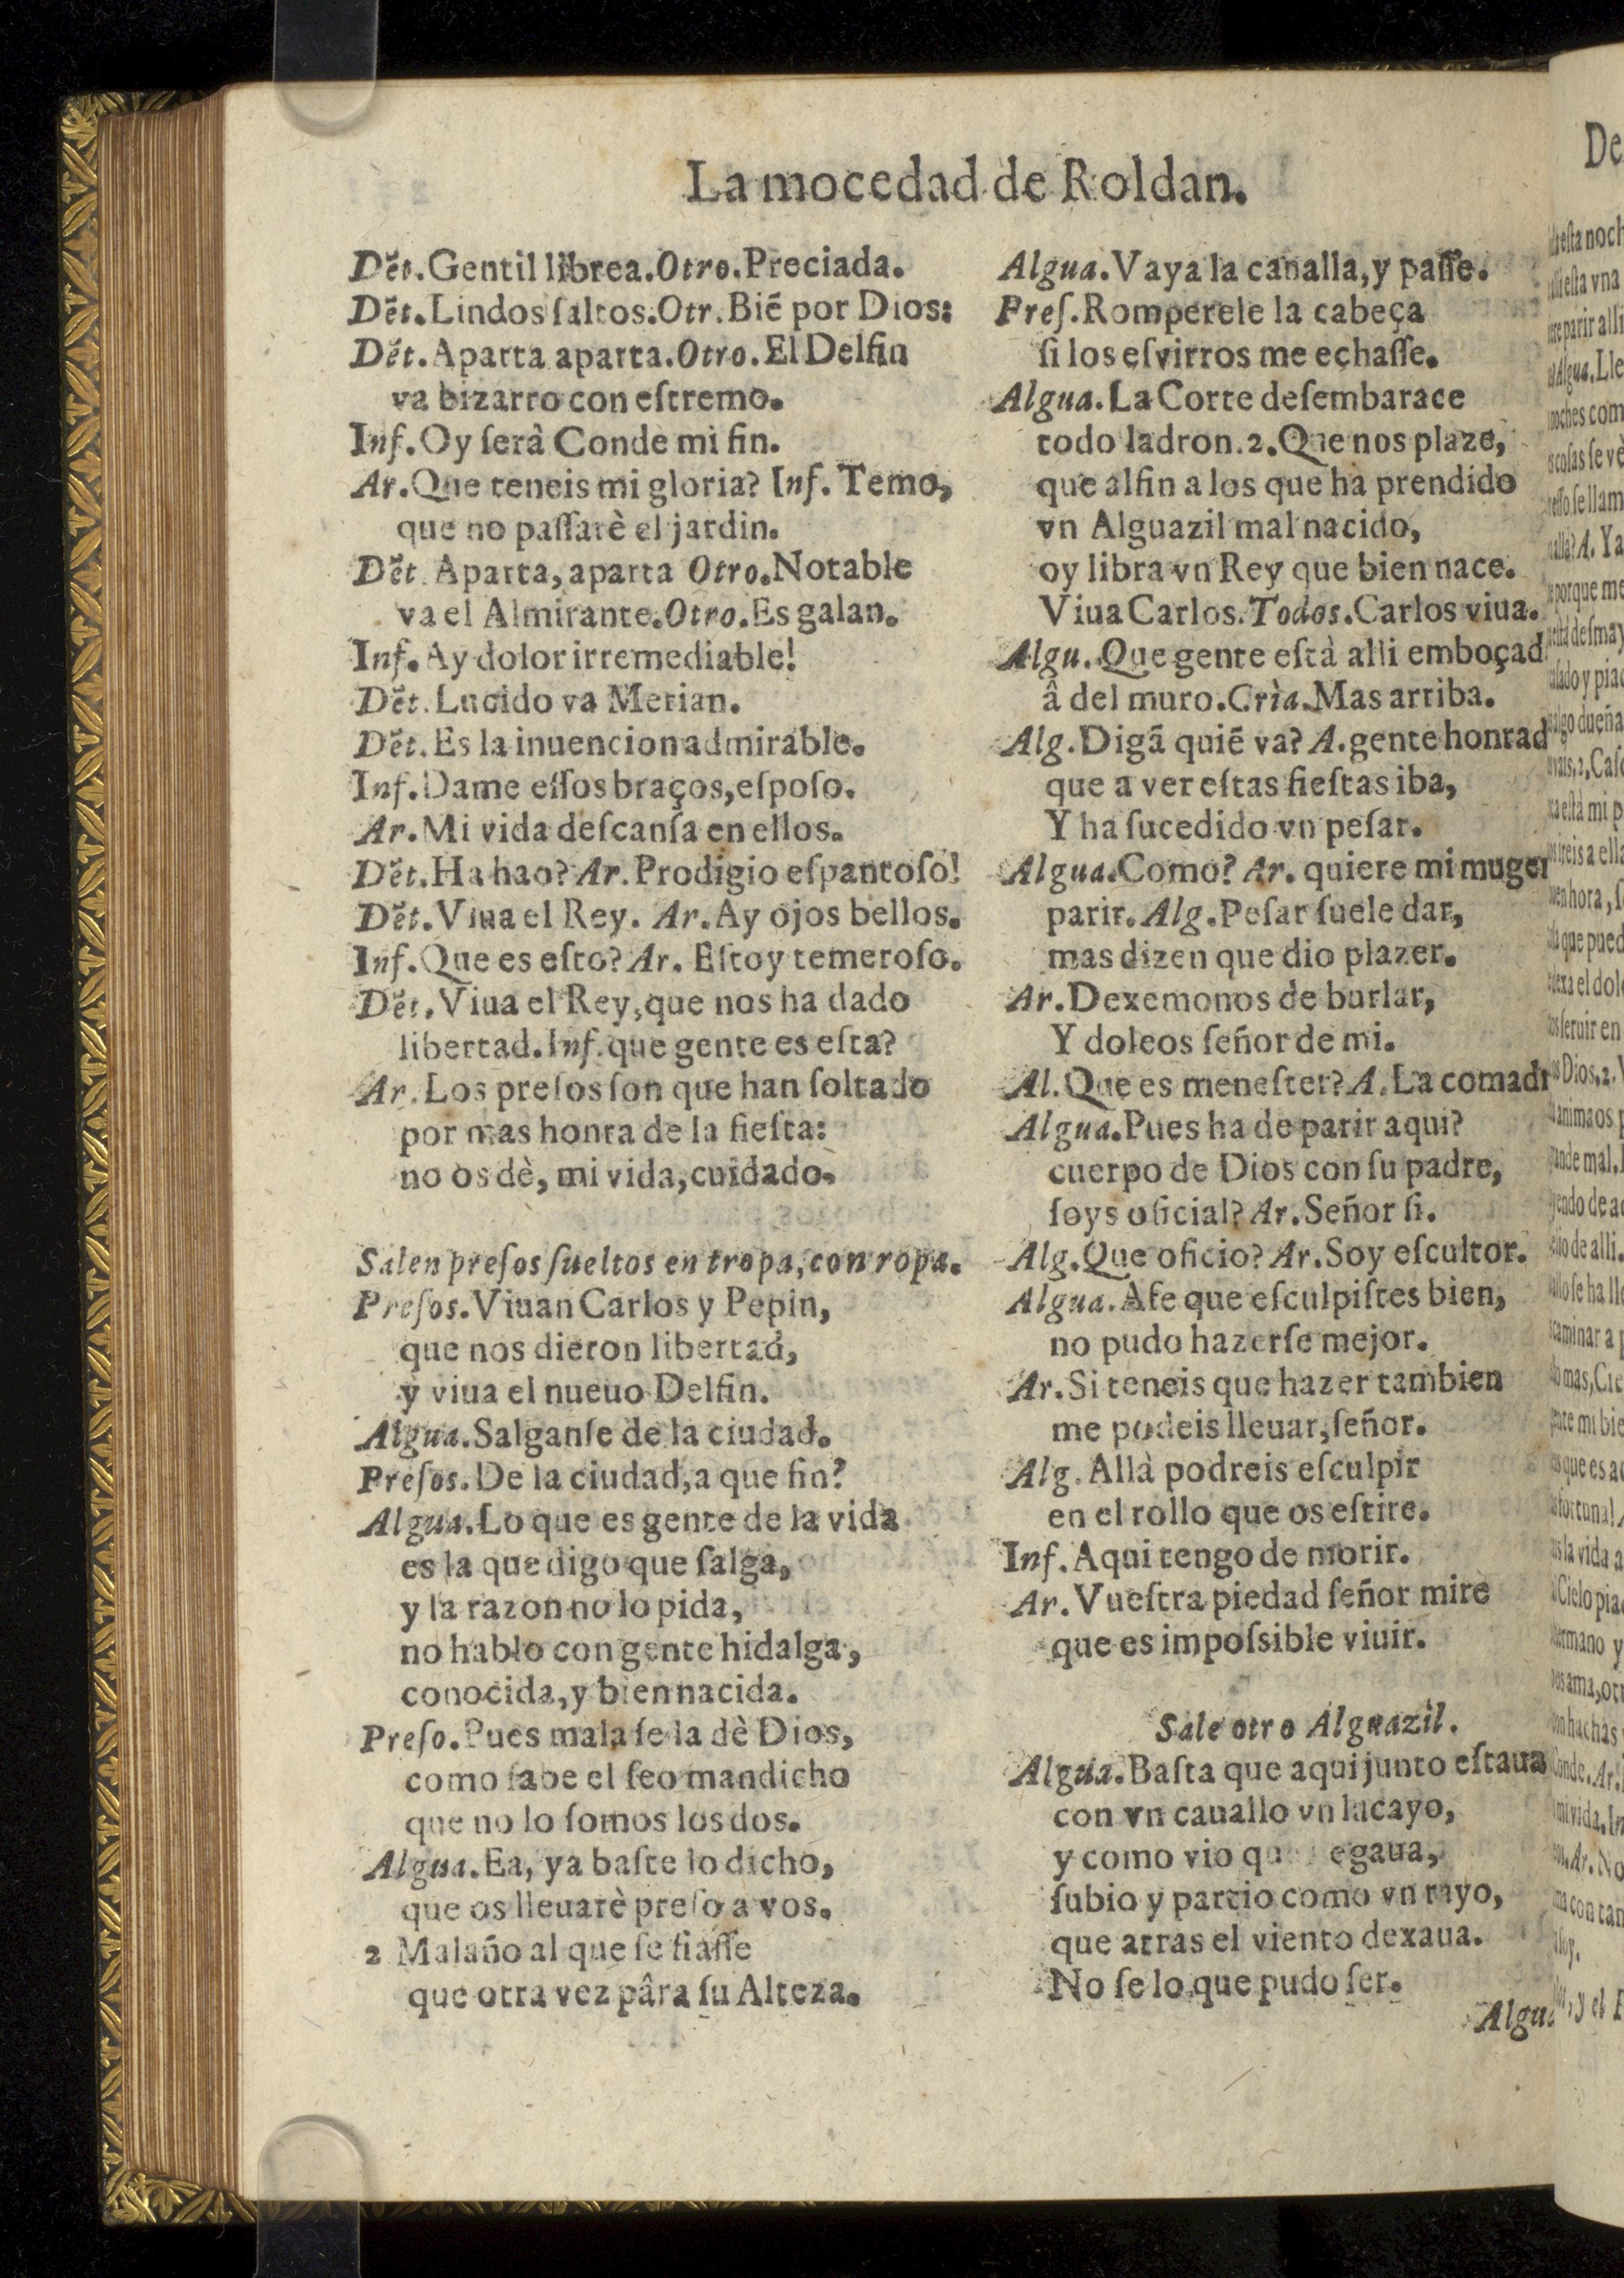 La mocedad de Roldan.
Dẽt. Gentil librea. Otro. Preciada.
Dẽt. Lindos ſaltos. Otr. Biẽ por Dios:
Dẽt. Aparta aparta. Otro. El Delfin
va bizarro con eſtremo.
Inf. Oy ſerà Conde mi fin.
Ar. Que teneis mi gloria? Inf. Temo,
que no paſſarè el jardin.
Dẽt. Aparta, aparta Otro. Notable
va el Almirante. Otro. Es galan.
Inf. Ay dolor irremediable!
Dẽt. Lucido va Merian.
Dẽt. Es la inuencion admirable.
Inf. Dame eſſos braços, eſpoſo.
Ar. Mi vida deſcanſa en ellos.
Dẽt. Ha hao? Ar. Prodigio eſpantoſo!
Dẽt. Viua el Rey. Ar. Ay ojos bellos.
Inf. Que es eſto? Ar. Eſtoy temeroſo.
Dẽt. Viua el Rey, que nos ha dado
libertad. Inf. que gente es eſta?
Ar. Los preſos ſon que han ſoltado
por mas honra de la fieſta:
no os dè, mi vida, cuidado.
Salen preſos ſueltos en tropa, con ropa.
Preſos. Viuan Carlos y Pepin,
que nos dieron libertad,
y viua el nueuo Delfin.
Algua. Salganſe de la ciudad.
Preſos. De la ciudad, a que fin?
Algua. Lo que es gente de la vida
es la que digo que ſalga,
y la razon no lo pida,
no hablo con gente hidalga,
conocida, y bien nacida.
Preſo. Pues mala ſe la dè Dios,
como ſabe el ſeo mandicho
que no lo ſomos los dos.
Algua. Ea, ya baſte lo dicho,
que os lleuarè preſo a vos.
2 Malaño al que ſe fiaſſe
que otra vez pâra ſu Alteza.
Algua. Vaya la canalla, y paſſe.
Preſ. Romperele la cabeça
ſi los eſvirros me echaſſe.
Algua. La Corte deſembarace
todo ladron. 2. Que nos plaze,
que alfin a los que ha prendido
vn Alguazil mal nacido,
oy libra vn Rey que bien nace.
Viua Carlos. Todos. Carlos viua.
Algu. Que gente eſtà alli emboçad
â del muro. Cria. Mas arriba.
Alg. Digã quiẽ va? A. gente honrad
que a ver eſtas fieſtas iba,
Y ha ſucedido vn peſar.
Algua. Como? Ar. quiere mi muger
parir. Alg. Peſar ſuele dar,
mas dizen que dio plazer.
Ar. Dexemonos de burlar,
Y doleos ſeñor de mi.
Al. Que es meneſter? A. La comadr
Algua. Pues ha de parir aqui?
cuerpo de Dios con ſu padre,
ſoys oficial? Ar. Señor ſi.
Alg. Que oficio? Ar. Soy eſcultor.
Algua. Afe que eſculpiſtes bien,
no pudo hazerſe mejor.
Ar. Si teneis que hazer tambien
me podeis lleuar, ſeñor.
Alg. Allà podreis eſculpir
en el rollo que os eſtire.
Inf. Aqui tengo de morir.
Ar. Vueſtra piedad ſeñor mire
que es impoſsible viuir.
Sale otro Alguazil.
Algua. Baſta que aqui junto eſtaua
con vn cauallo vn lacayo,
y como vio egaua,
ſubio y partio como vn rayo,
que atras el viento dexaua.
No ſe lo que pudo ſer.
Algua